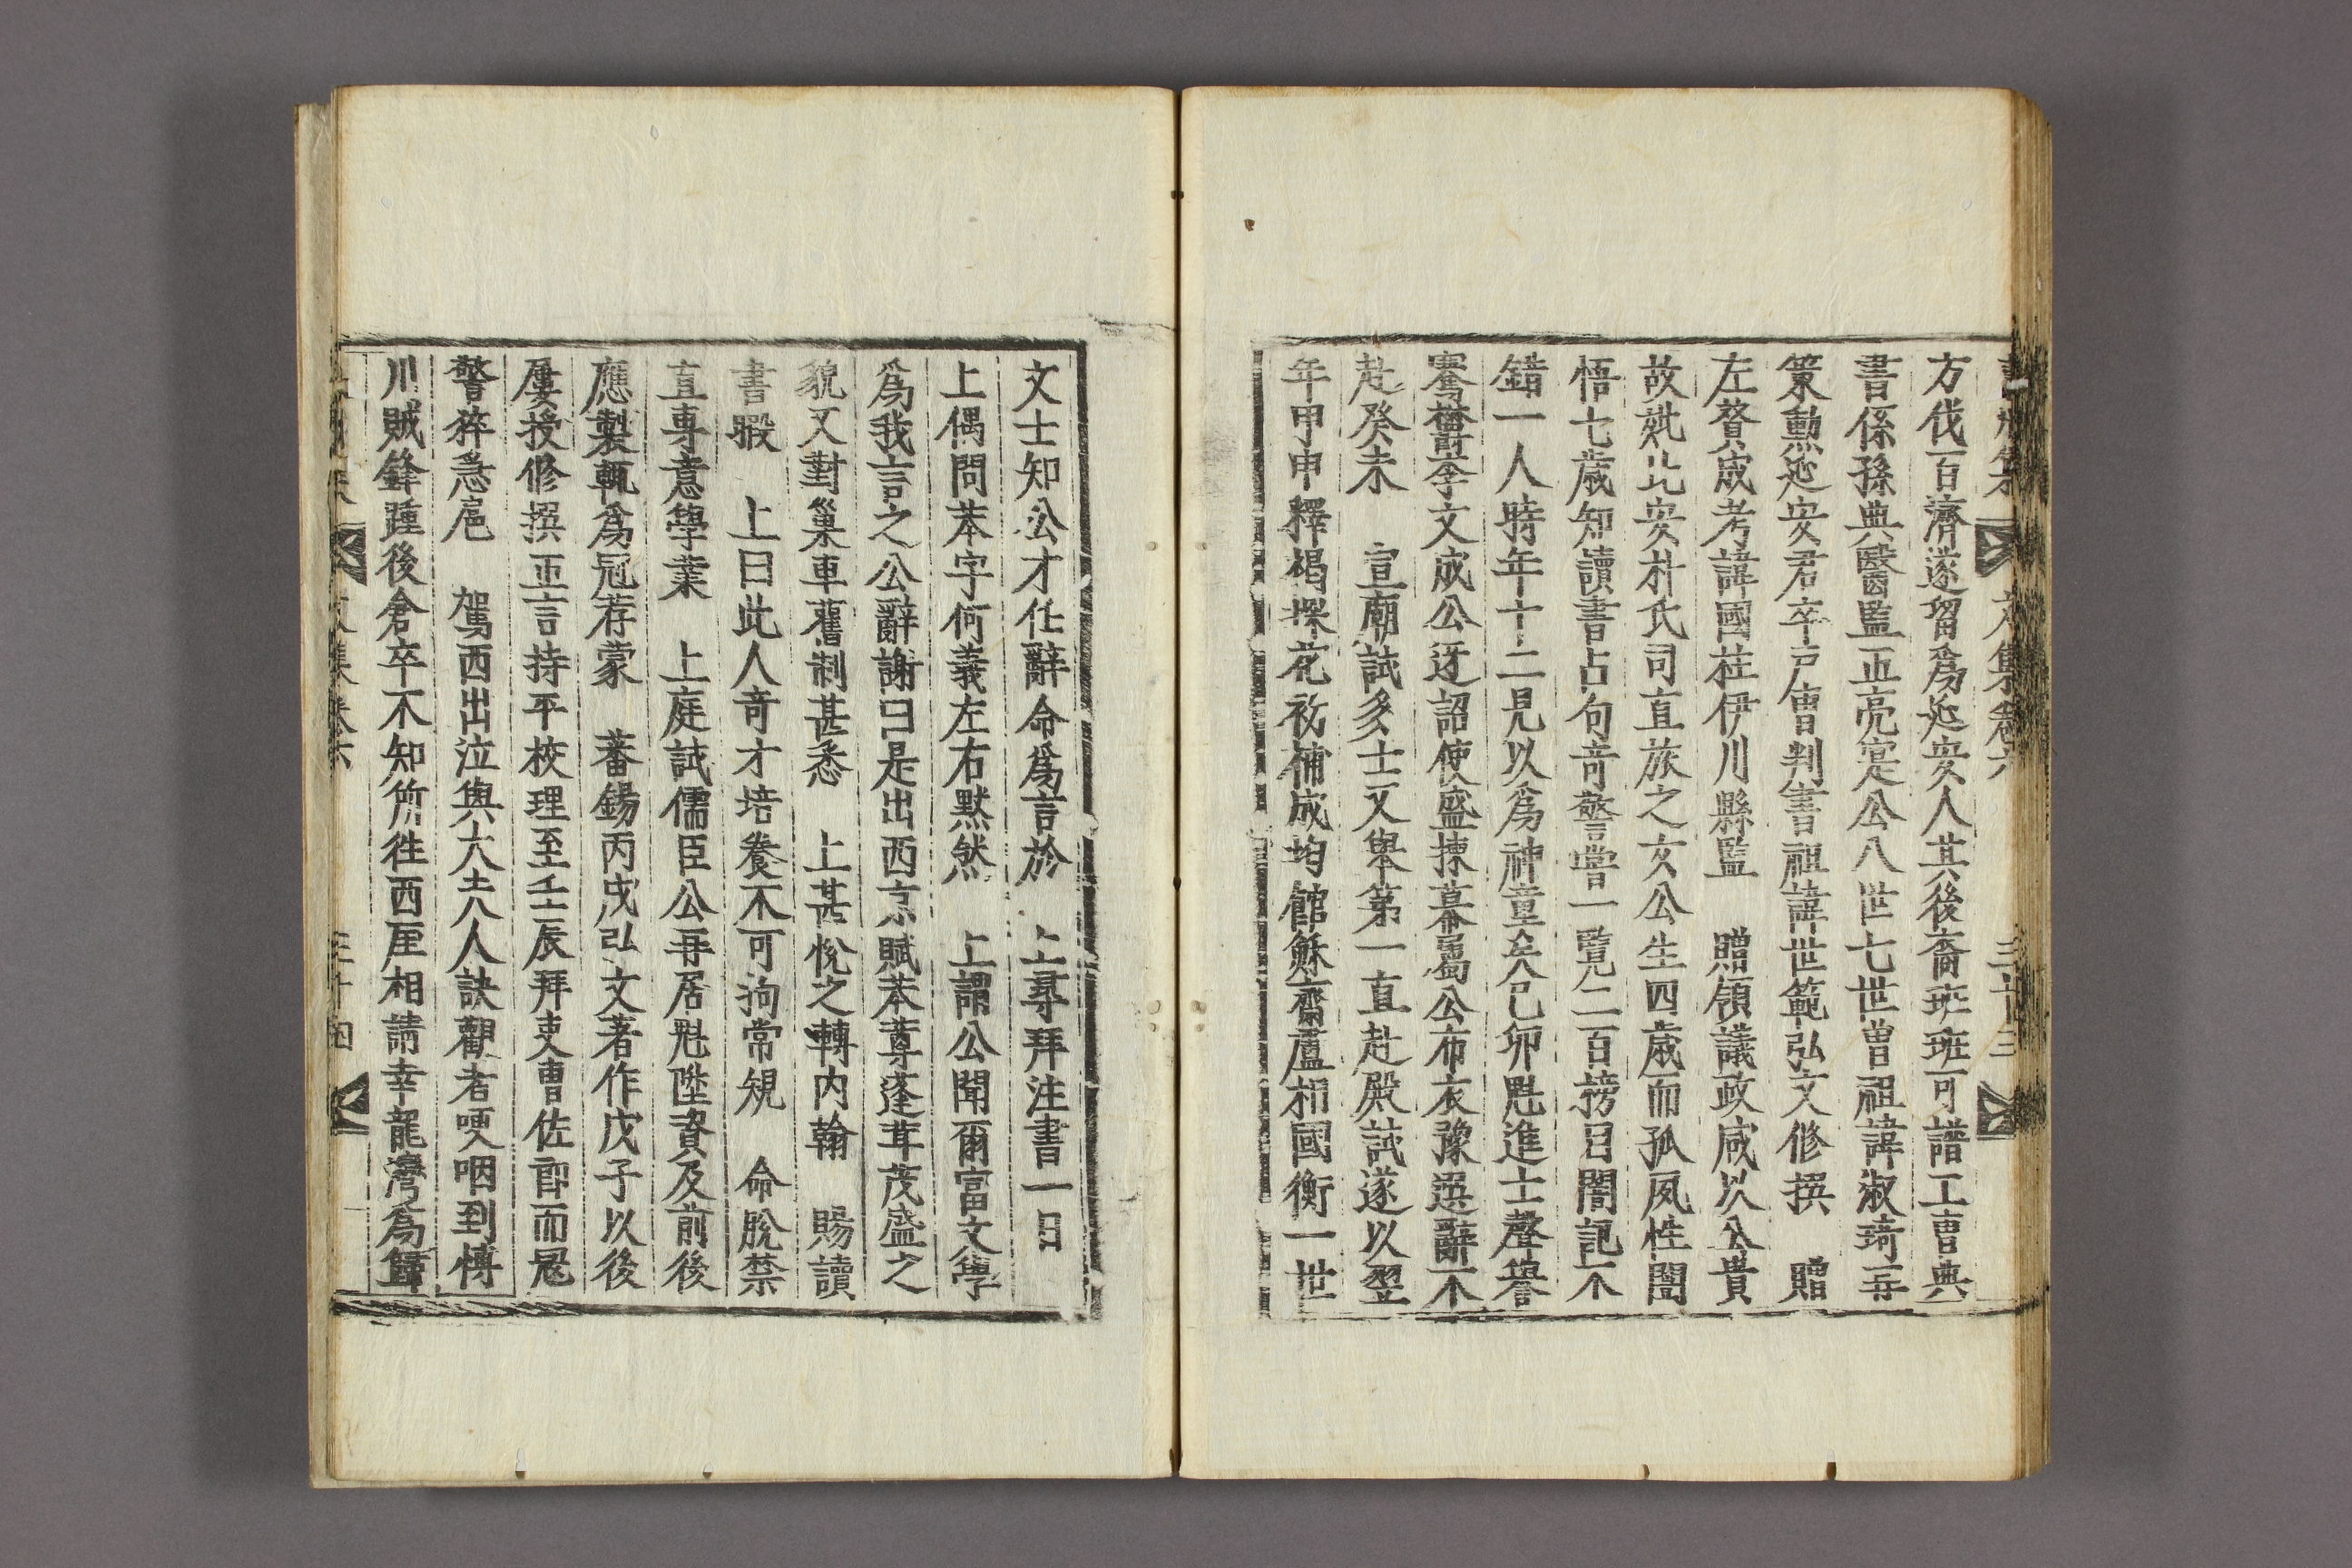 文集卷六 三十三
方伐百濟遂留爲延安人其後裔班班可譜工曹典
書係孫典醫監正亮寔公八世七世曾祖諱淑琦再
策勳延安君卒戶曹判書祖諱世範弘文修撰 贈
左贊成考諱國柱伊川縣監 贈領議政咸以公貴
故妣比安朴氏司直旅之女公生四歲而孤夙性闓
悟七歲知讀書占句奇警嘗一覽二百榜目闇記不
錯一人時年十二見以爲神童矣己卯魁進士聲譽
騫 李文成公迓詔使盛揀幕屬公布衣豫選辭不
赴癸未 宣廟試多士又擧第一直赴殿試遂以翌
年甲申釋褐探花初補成均館穌齋盧相國衡一世
文士知公才任辭命爲言於 上尋拜注書一日
上偶問苯字何義左右默然 上謂公聞爾富文學
爲我言之公辭謝曰是出西京賦苯䔿蓬茸茂盛之
貌又對巢車舊制甚悉 上甚悅之轉內翰 賜讀
書暇 上曰此人奇才培養不可拘常規 命脫禁
直專意學業 上庭試儒臣公再居魁陞資及前後
應製輒爲冠荐蒙 蕃錫丙戌弘文著作戊子以後
屢授修撰正言持平校理至壬辰拜吏曹佐郞而冦
警猝急扈 駕西出泣與大夫人訣觀者哽咽到博
川賊鋒踵後倉卒不知所徃西厓相請幸龍灣爲歸
文集卷六 三十四